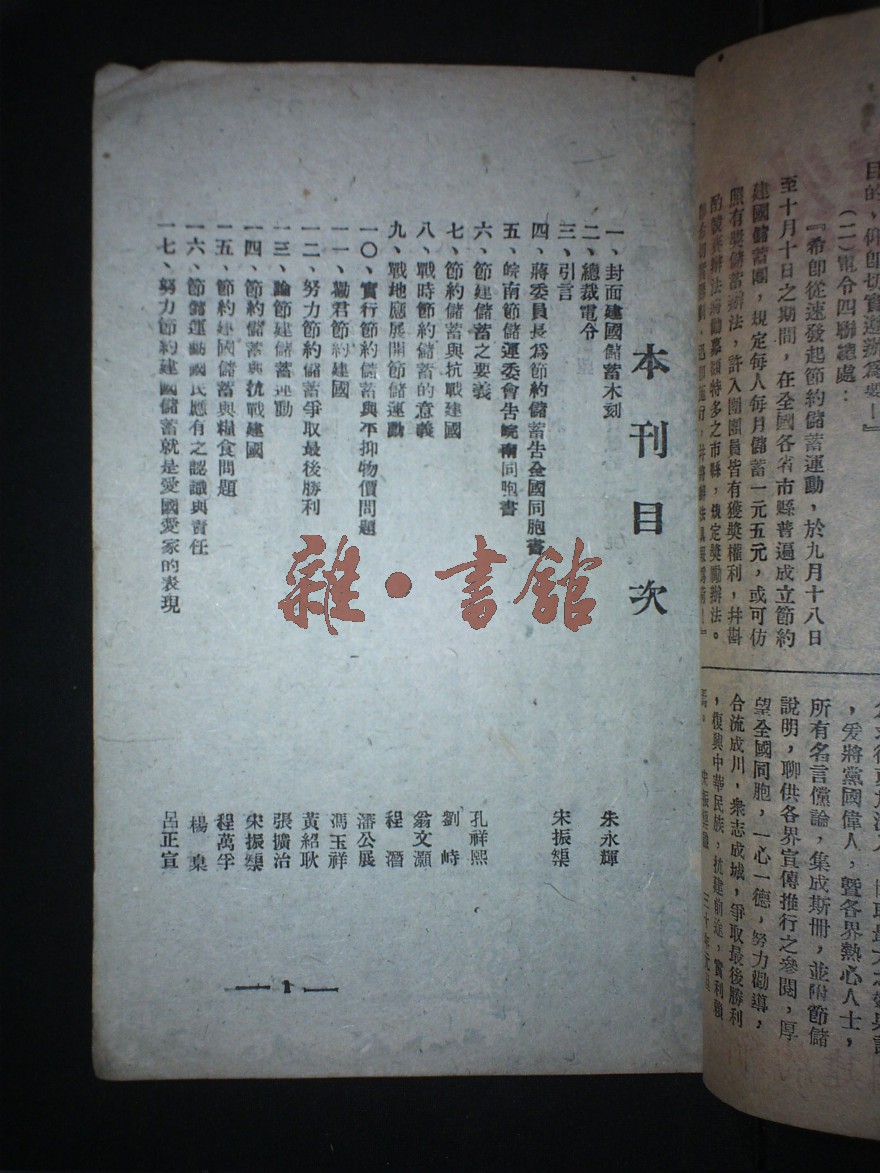 目的、仰即切實遵辦為要！』
（二）電令四聯總處：
『希即從速發起節約儲蓄運動，於九月十八日
至十月十日之期間，在全國各省市縣普遍成立節約
建國儲蓄團，規定每人每月儲蓄一元五元，或可仿
照有獎儲蓄辦法，許入團團員皆有獲獎權利，并斟
特多之市縣，規定獎勵辦法。
，爰將黨國偉人，暨各界熱心人士，
所有名言儻論，集成斯冊，並附節儲
說明，聊供各界宣傳推行之參閱，厚
望全國同胞，一心一德，努力勸導，
合流成川，衆志成城，爭取最後勝利
，復興中華民族，抗建前途，實利賴
焉。
本刊目次
一、封面建國儲蓄木刻 朱永輝
二、總裁電令
三、引言 宋振榘
四、蔣委員長爲節約儲蓄告全國同胞書
五、皖南節儲運委會告皖南同胞書
六、節建儲蓄之要義 孔祥熙
七、節約儲蓄與抗戰建國 劉峙
八、戰時節約儲蓄的意義 翁文灝
九、戰地應展開節儲運動 程潛
一〇、實行節約儲蓄與平抑物價問題 潘公展
一一、勸君節約建國 馮玉祥
一二、努力節約儲蓄爭取最後勝利 黃紹耿
一三、論節建儲蓄運動 張擴治
一四、節約儲蓄與抗戰建國 宋振榘
一五、節約建國儲蓄與糧食問題 程萬孚
一六、節儲運動國民應有之認識與責任 楊棄
一七、努力節約建國儲蓄就是愛國愛家的表現 呂正宣
— 1 —
雜·書館